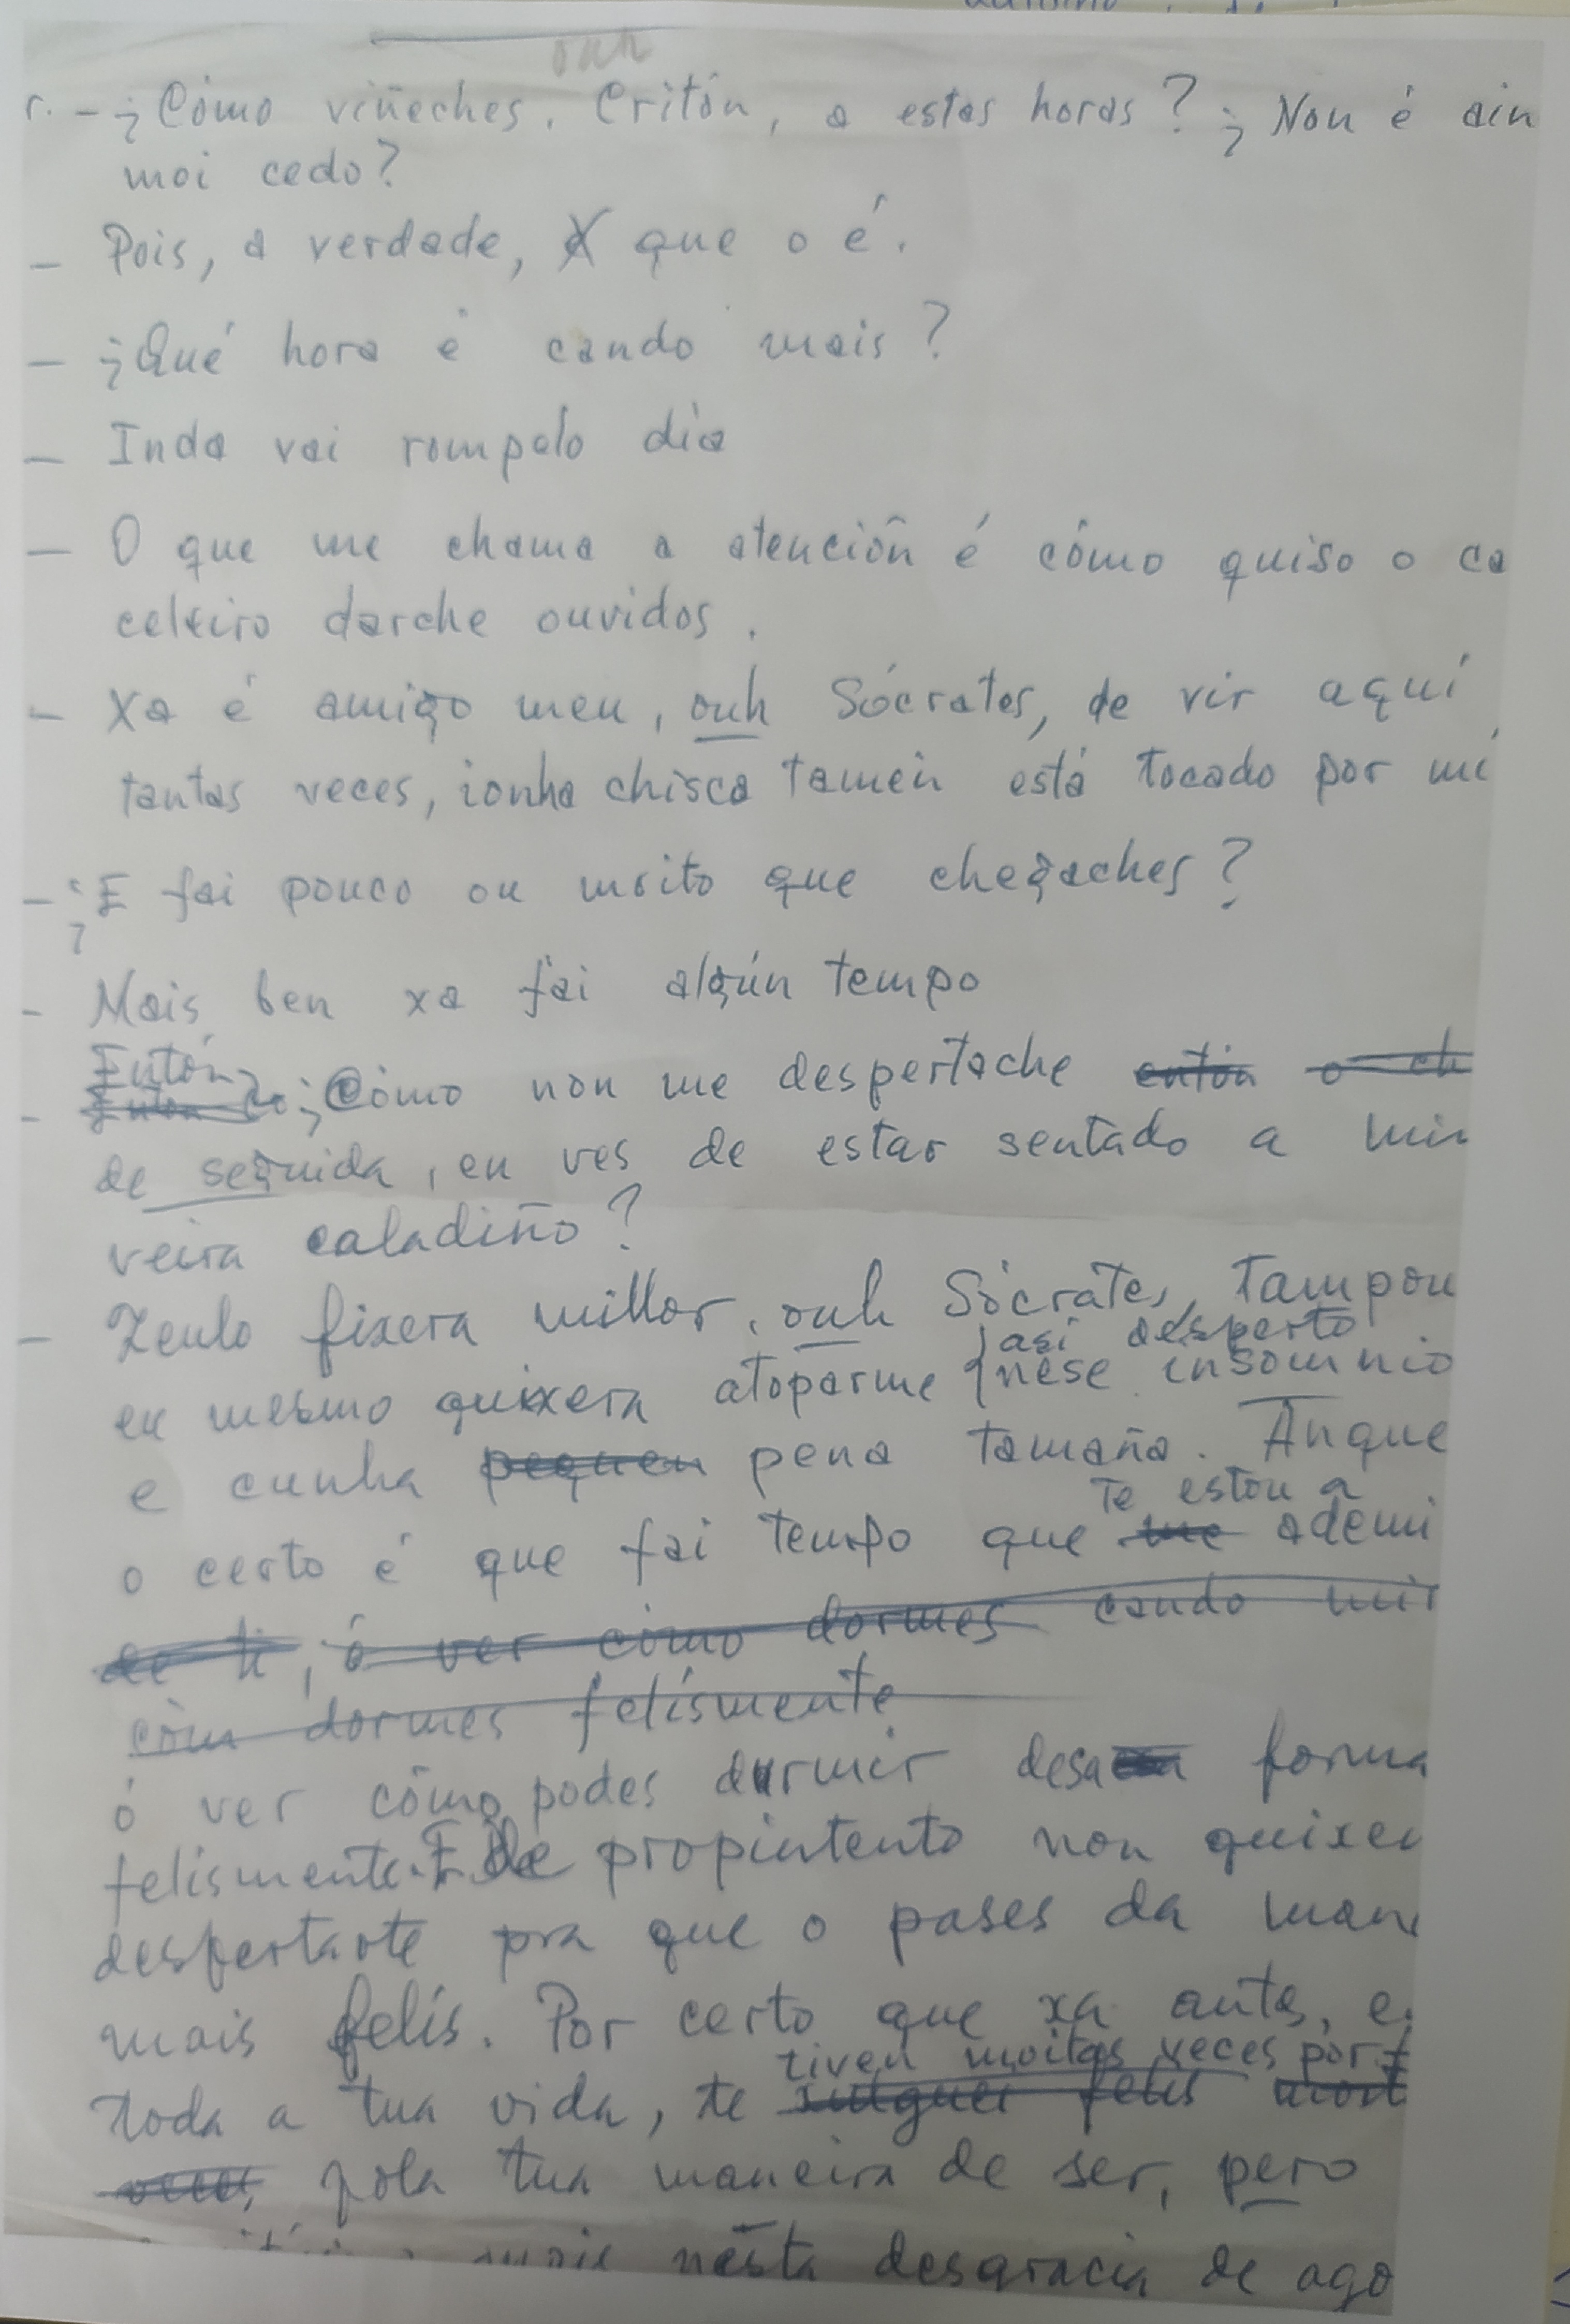 ouh
r. - ¿Cómo viñeches, Critón, a estas horas? ¿Non é ain
moi cedo?
- Pois, a verdade, que o é.
- ¿Qué hora é cando mais?
- Inda vai rompelo día
- O que me chama a atención é cómo quiso o ca
celeiro darche ouvidos.
- Xa é amigo meu, ouh Sócrates, de vir aquí
tantas veces, i onha chisca tamén está tocado por mi
- ¿E fai pouco ou moito que chegaches?
- Mais ben xa fai algún tempo
Entón
- ¿Cómo non me despertache entón o ch
de seguida, en ves de estar sentado a min
veira caladiño?
- Zeulo fixera millor, ouh Sócrates, tampou
así desperto
eu mesmo quixera atoparme nese insomnio
e cunha pequen pena tamaña. Anque
te estou a
o certo é que fai tempo que me ademi
de ti, ó ver cómo dormes cando mir
cóm dormes felismente
ó ver cómo podes durmir desa forma
felismente. E de propiintento non quixen
despertarte pra que o pases da man
mais felís. Por certo que xa antes, e
tiven moitas veces por f
toda a tua vida, te xulguei felís moit
veces, pola tua maneira de ser, pero
mais nesta desgracia de ago